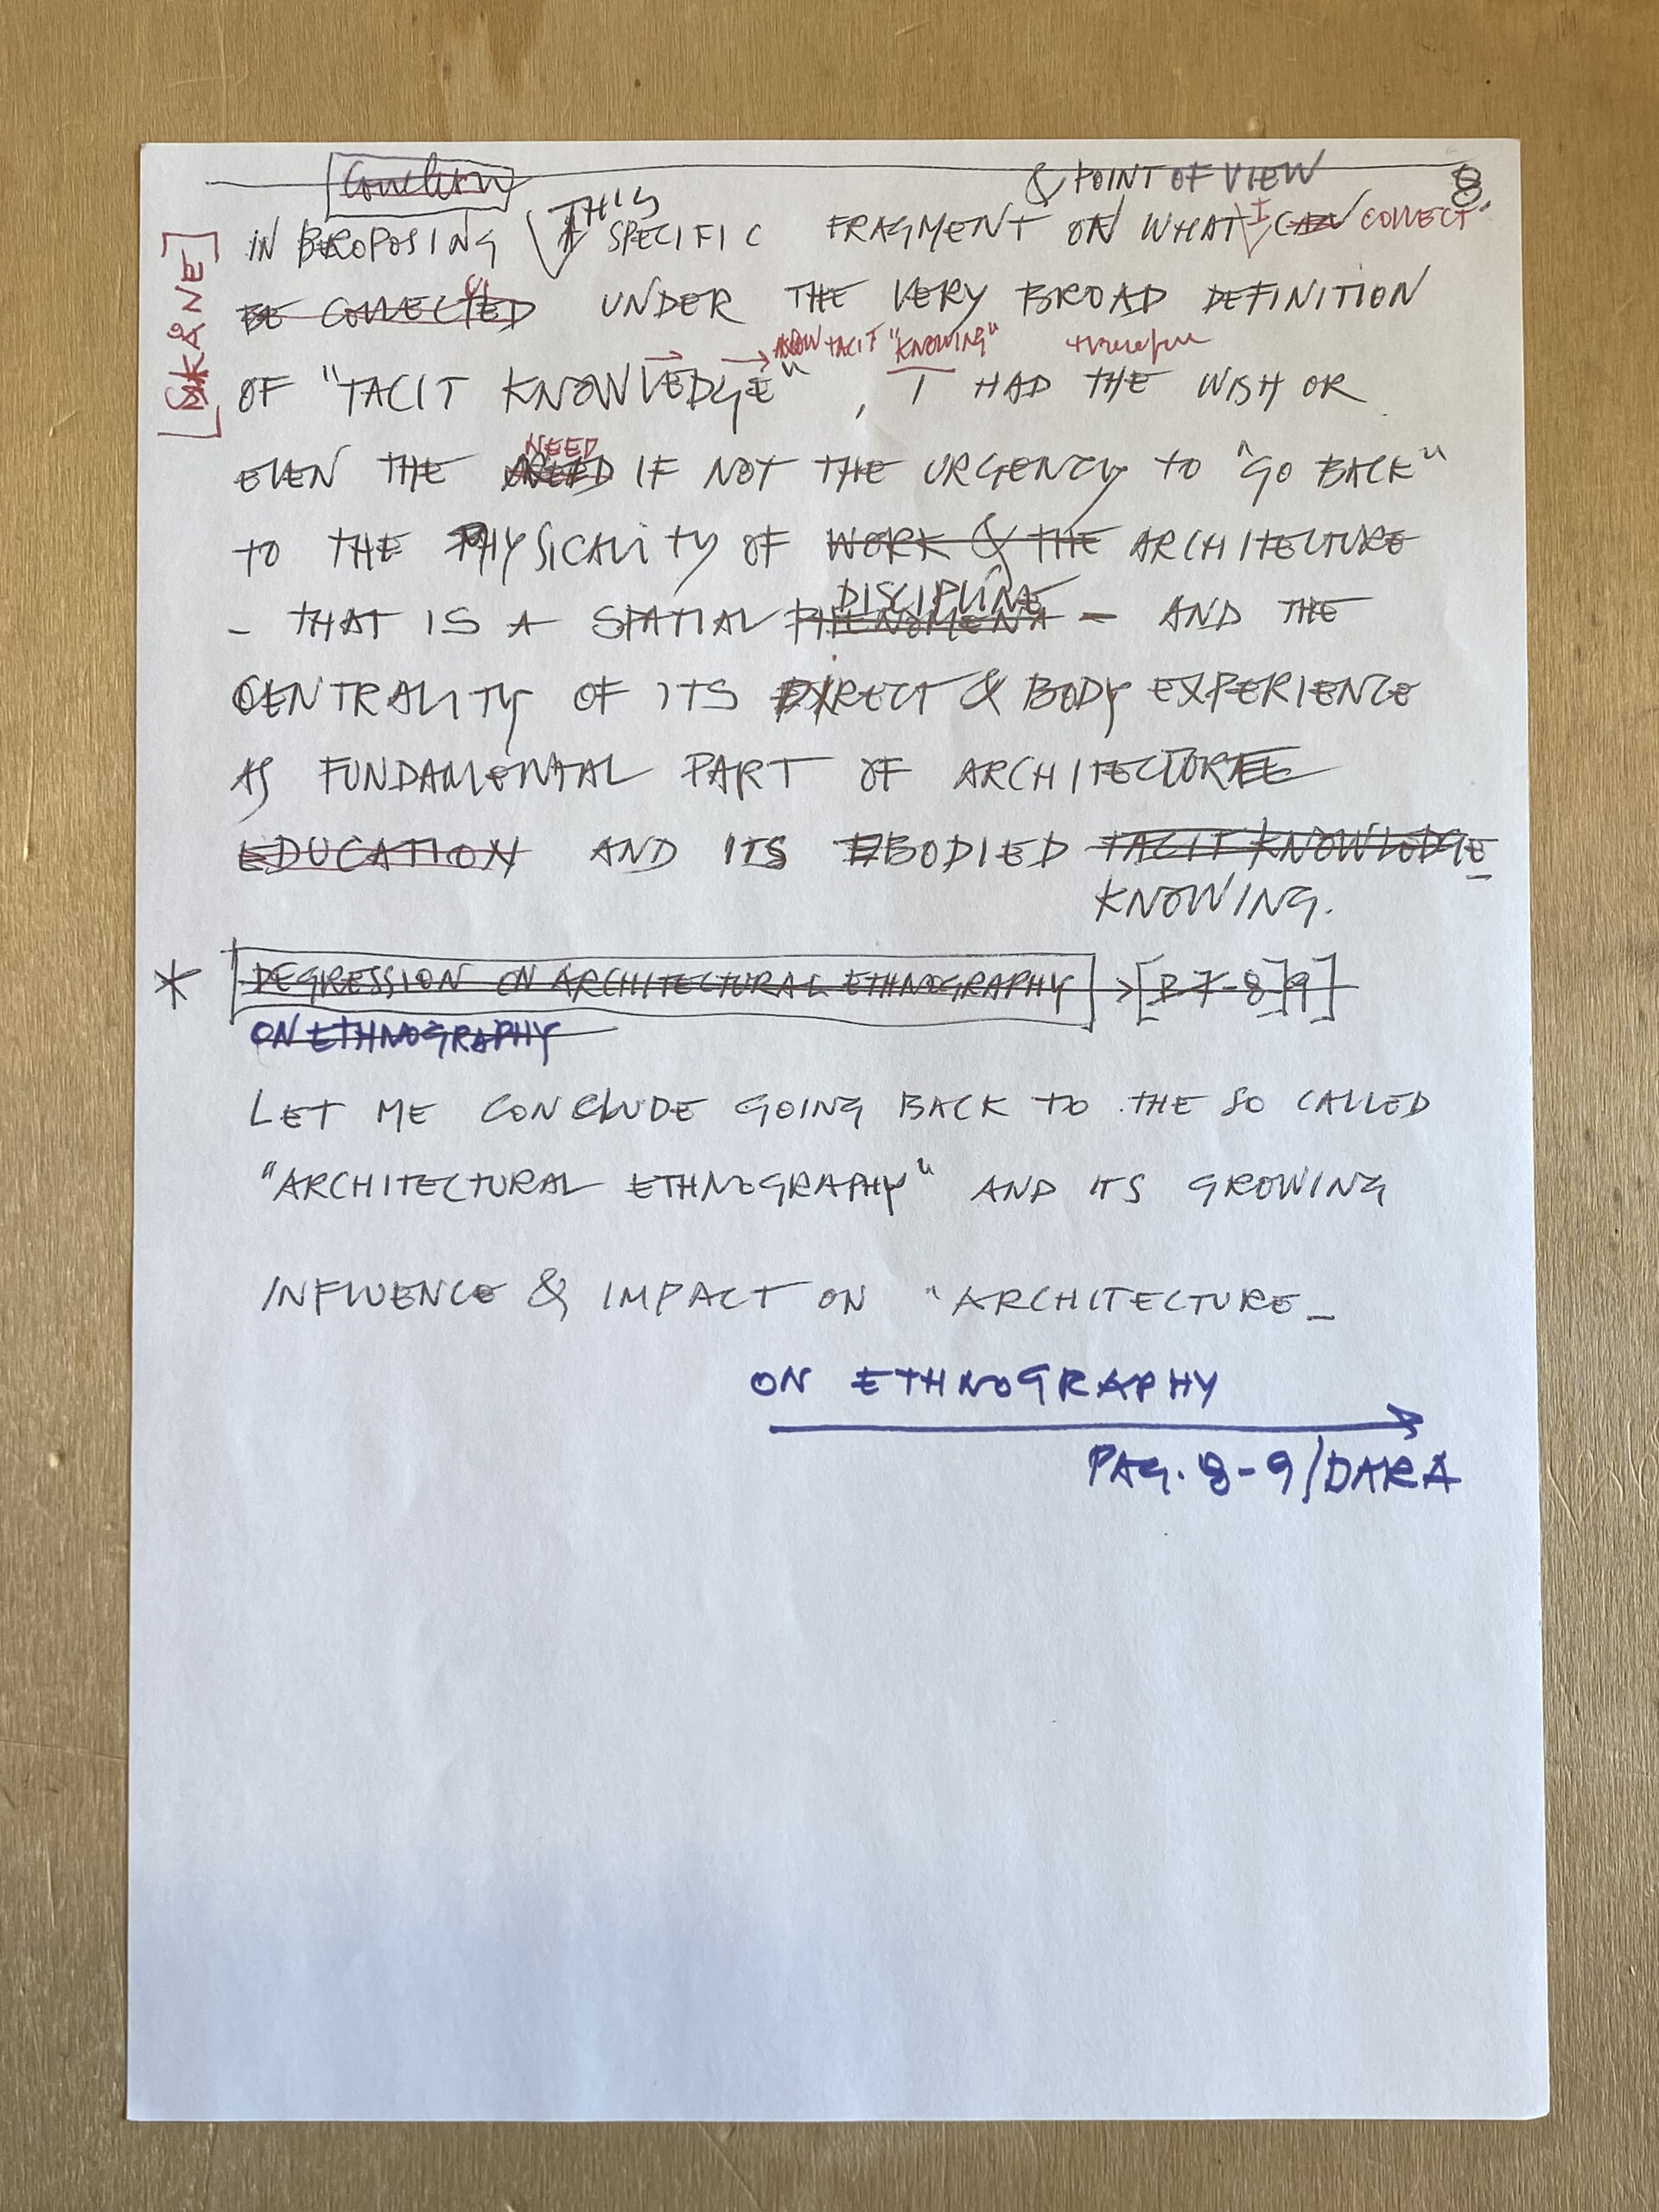 Conclusion
& POINT OF VIEW 8
IN PROPOSING THIS SPECIFIC FRAGMENT ON WHAT I CAN COLLECT
[SKÅNE]
BE COLLECTED UNDER THE VERY BROAD DEFINITION
TACIT "KNOWING" therefore
OF "TACIT KNOWLEDGE", I HAD THE WISH OR
NEED
EVEN THE NEED IF NOT THE URGENCY TO "GO BACK"
TO THE PHYSICALITY OF WORK & THE ARCHITECTURE
DISCIPLINE
- THAT IS A SPATIAL PHENOMENA - AND THE
CENTRALITY OF ITS DIRECT & BODY EXPERIENCE
AS FUNDAMENTAL PART OF ARCHITECTURE
EDUCATION AND ITS BODIED TACIT KNOWLEDGE
KNOWING.
* DEGRESSION ON ARCHITECTURAL ETHNOGRAPHY > [P 7-8]9]
ON ETHNOGRAPHY
LET ME CONCLUDE GOING BACK TO THE SO CALLED
"ARCHITECTURAL ETHNOGRAPHY" AND ITS GROWING
INFLUENCE & IMPACT ON "ARCHITECTURE_
ON ETHNOGRAPHY
PAG. 8-9/DARA